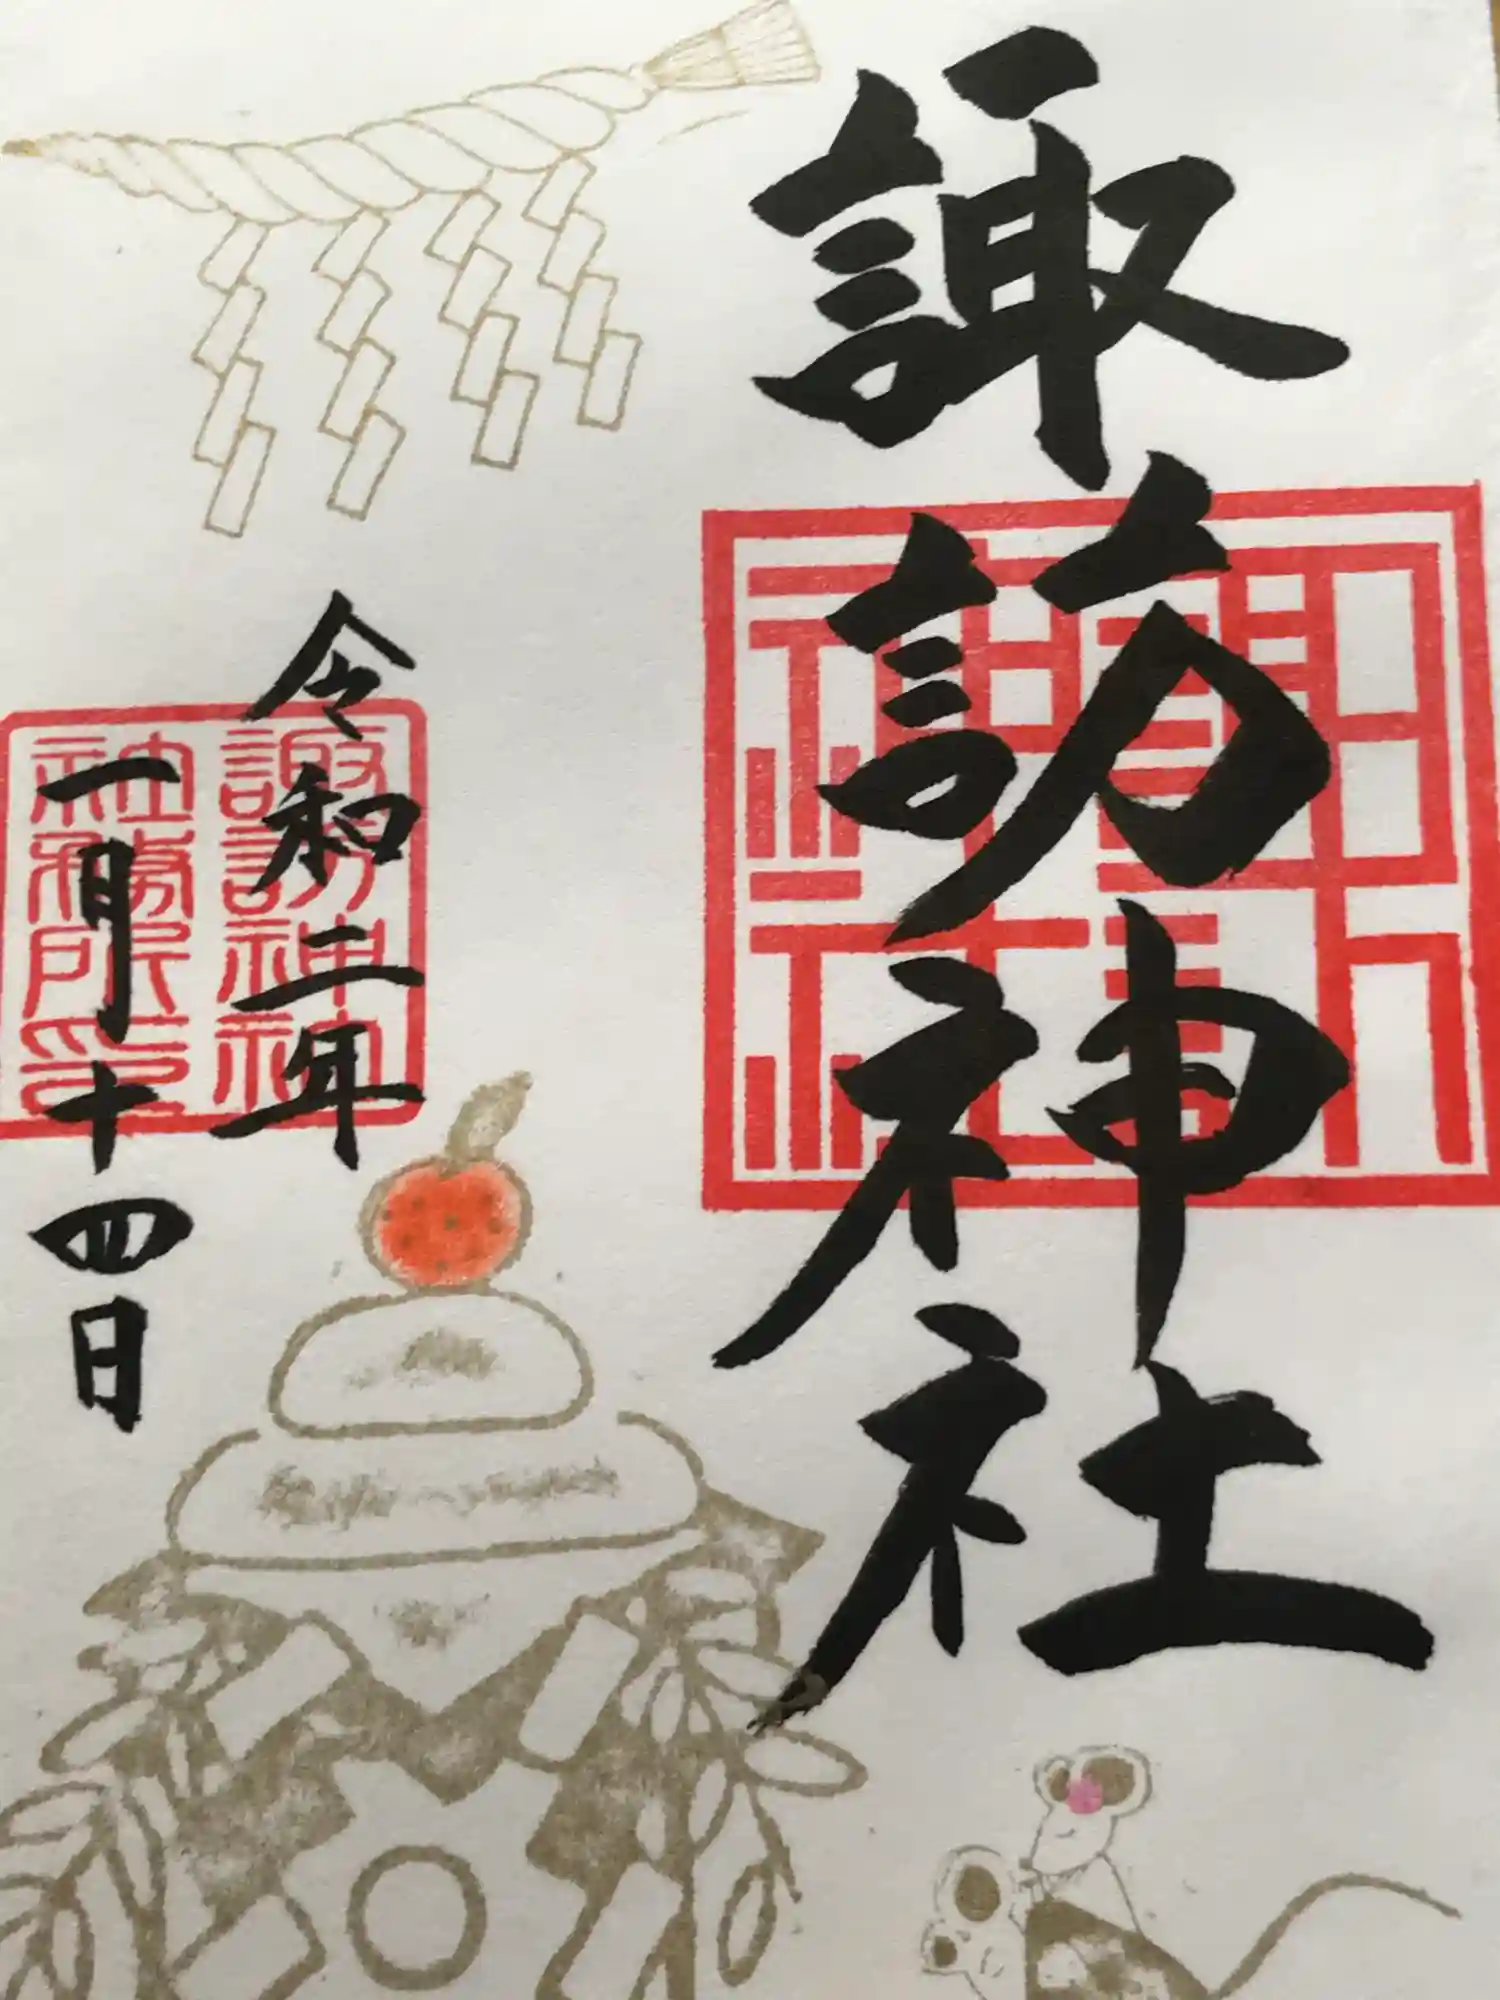 諏訪神社
令和二年
一月十四日
諏訪神社
社務所印
諏訪神社